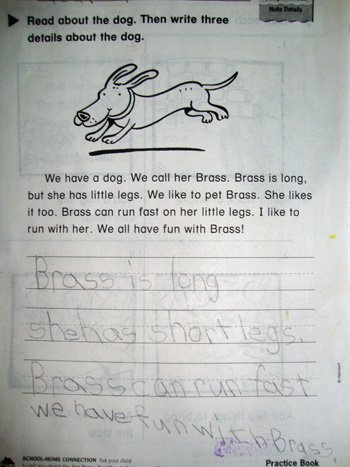 Note Details
Read about the dog. Then write three
details about the dog.
We have a dog. We call her Brass. Brass is long,
but she has little legs. We like to pet Brass. She likes
it too. Brass can run fast on her little legs. I like to
run with her. We all have fun with Brass!
Brass is long
she has short legs.
Brass can run fast
we have fun with Brass
SCHOOL-HOME CONNECTION Ask your child
Practice Book